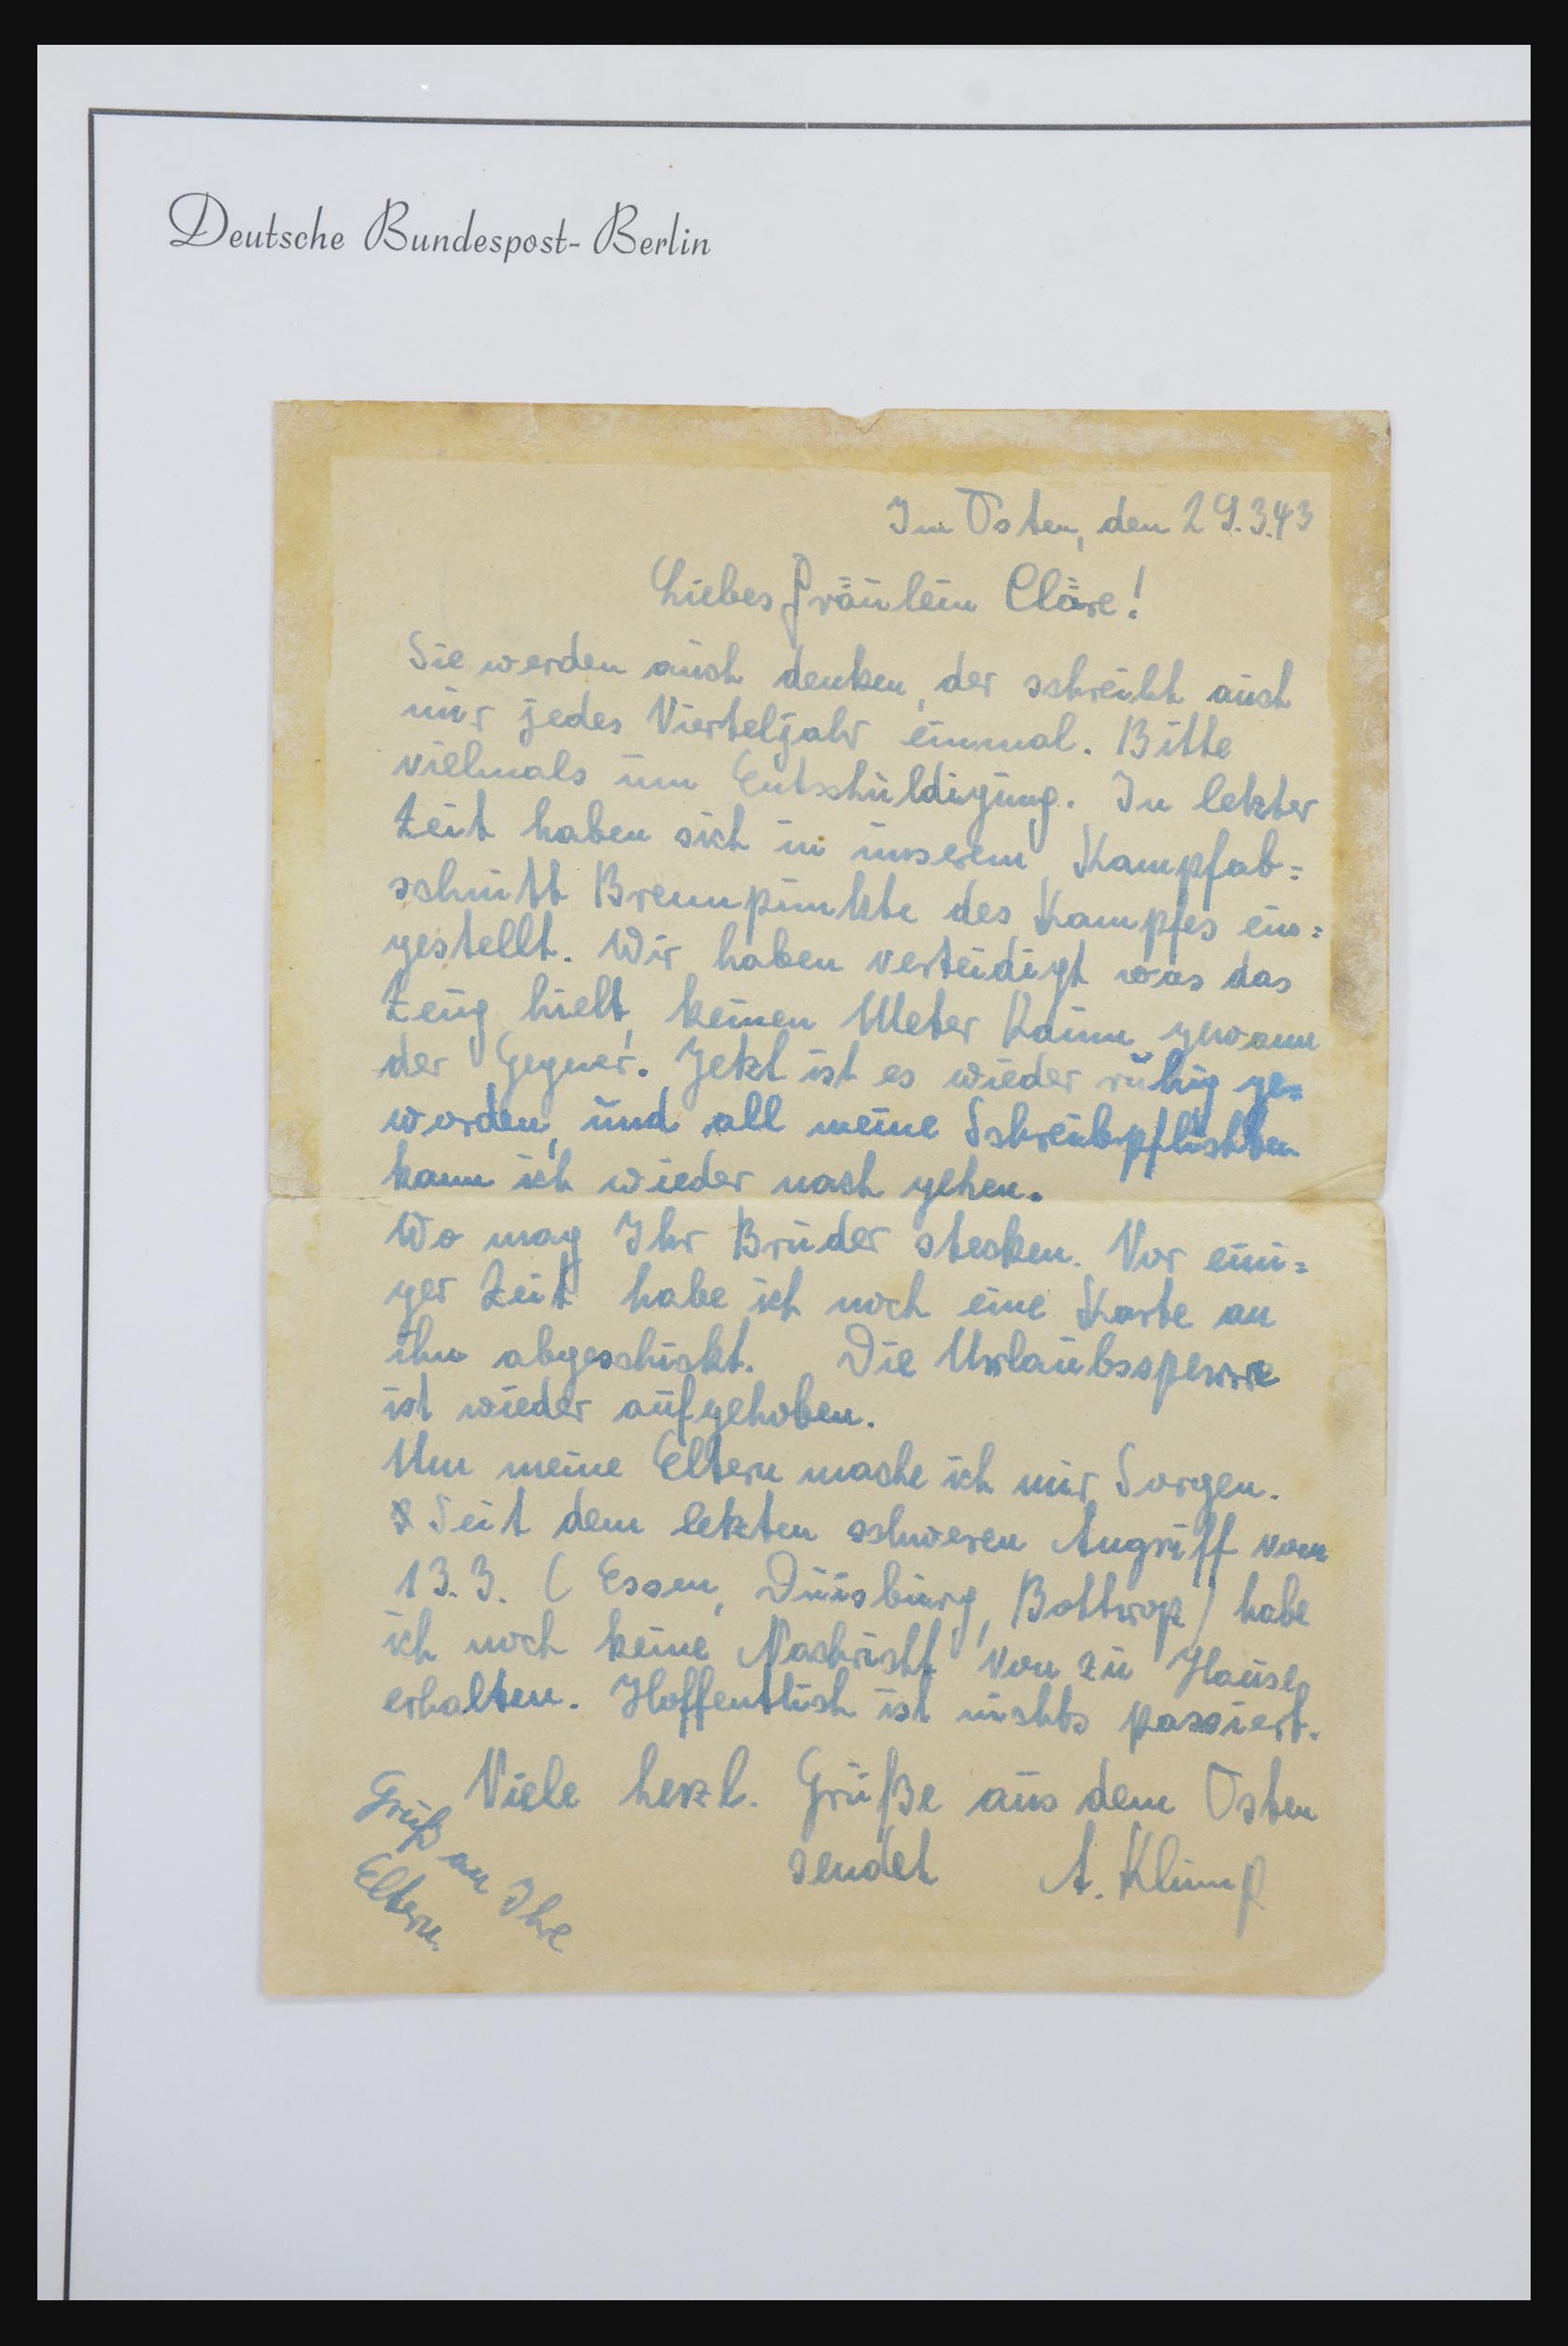 Deutsche Bundespost-Berlin
Im Osten, den 29.3.43
Liebes Fräulein Cläre!
Sie werden auch denken, der schreibt auch
nur jedes Vierteljahr einmal. Bitte
vielmals um Entschuldigung. In letzter
Zeit haben sich in unserem Kampfab=
schnitt Brennpunkte des Kampfes ein=
gestellt. Wir haben verteidigt was das
Zeug hielt, keinen Meter Raum gewann
der Gegner! Jetzt ist es wieder ruhig ge=
worden, und all meine Schreibpflichten
kann ich wieder nach gehen.
Wo mag Ihr Bruder stecken. Vor eini=
ger Zeit habe ich noch eine Karte an
ihn abgeschickt. Die Urlaubssperre
ist wieder aufgehoben.
Um meine Eltern mache ich mir Sorgen.
Seit dem letzten schweren Angriff vom
13.3. (Essen, Duisburg, Bottrop) habe
ich noch keine Nachricht von zu Hause
erhalten. Hoffentlich ist nichts passiert.
Viele herzl. Grüße aus dem Osten
sendet A. Klump
Gruß an Ihre
Eltern.